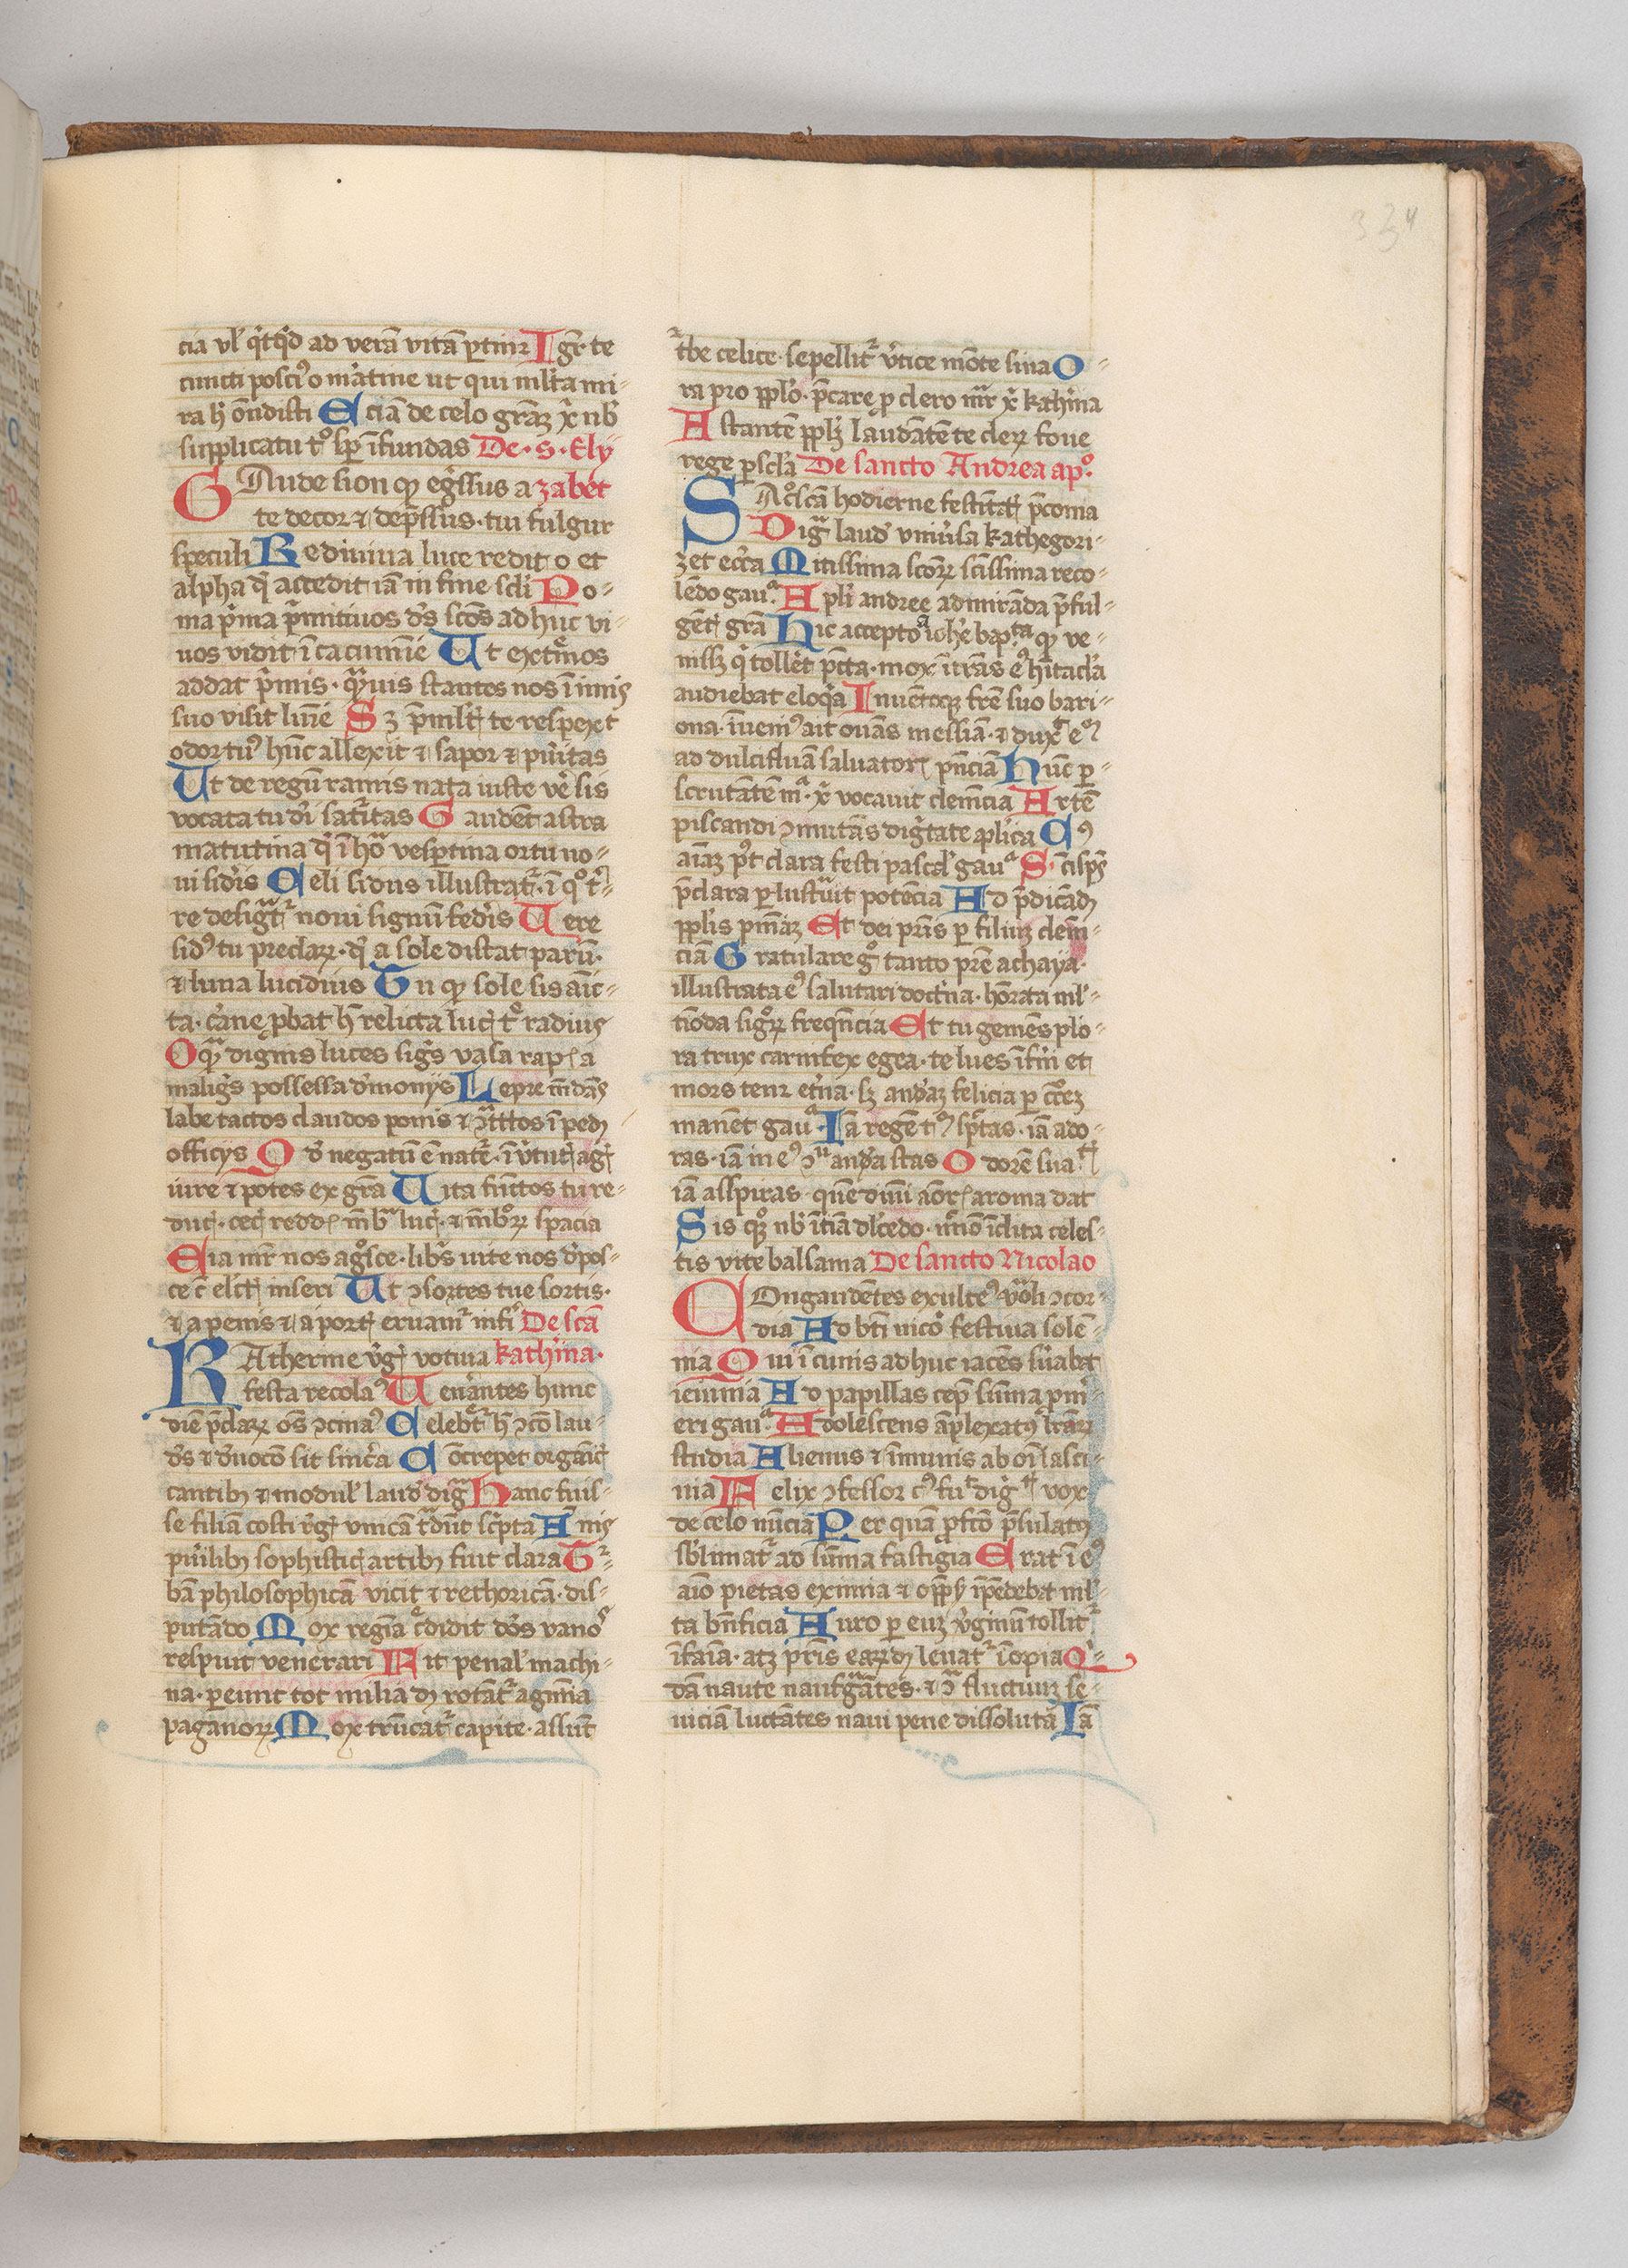 334
cia vł q̇tq̇d ad verā vitā ꝑtinꝫ Igr̄ te
cuncti poscim᷒ o martine ut qui ml̄ta mi-
ra h̄ ōndisti Eciā de celo grāꝫ xp̄i nob̄
supplicatu t᷒o sꝑ īfundas De · S · Ely
GAude sion ꝙ eg̃ssus a zabet
te decor ⁊ dep̄ssus · tui fulgur
speculi Rediuiua luce redit o et
alpha q̇ accedit iā in fine scl̄i Po-
ma p̃ma p̃mitiuos ds̄ scōs adhuc vi-
uos vidit ī cacumīe Ut extr̄mos
addat p̃mis · q̃uis stantes nos ī imis
suo visit lumīe Sꝫ p̄ ml̄tꝭ te respexit
odor tu᷒ hūc allexit ⁊ sapor ⁊ pur̄itas
Ut de regū ramis nata iuste ve᷒ sis
vocata tu dei sat᷑itas Gaudēt astra
matutina q̇ ī hora vesꝑtina ortu no-
ui sider̄is Celi sidus illustrat᷑ · ī q᷒ t᷒r-
re desigt᷑ noui signū feder̄is Uere
sid᷒ tu preclarꝝ · q̇ a sole distat parū ·
⁊ luna lucidius Tu ꝙ sole sis amic-
ta · carne ꝓbat h̄ relicta lucꝭ t᷒ radius
O q̃ dignis luces sigīs vasa rapis a
malignis possessa demonijs Lepre mūdas
labe tactos claudos ponis ⁊ ꝯt᷑ctos ī pedū
officijs Qd̄ negatū ē nat᷑e · ī v᷑tutꝭ agꝭ
iure ⁊ potes ex grā Uita fūctos tu re-
ducꝭ · cecꝭ reddis mb̄ra lucꝭ · ⁊ mb̄roꝝ spacia
Eia mr̄ nos agn̄sce · libr̄o uite nos depos-
ce cū elctꝭ inseri Ut ꝯsortes tue sortis ·
⁊ a penis ⁊ a portꝭ eruam᷑ inferi De scā
KAtherine v᷑gꝭ votiua kath᷑ina ·
festa recolam᷒ Uener̄antes hunc
diē p̄clarꝝ oēs ꝯcinam᷒ Celebr̄et᷑ h̄ ꝯcō lau-
dis ⁊ deuocō sit sincer̄a Cōcrepet organicꝭ
cantibꝫ ⁊ modulꝭ laude digna Hanc fuis-
se filiā costi regꝭ vnicā t᷑dūt sc̃pta Annis
pueriliꝫ sophisticꝭ artibꝫ fuit clara T᷑-
bā philosophicā vicit ⁊ rethoricā · dis-
putādo Mox reginā c᷑didit deos vanos
respuit venerari Fit penal᷑ machi-
na · ꝑeunt tot milia dū rotāt᷑ agmīa
paganorꝝ Mox trūcat᷑ capite · assunt
t᷑be celice · sepellit᷑ v᷑tice mōte sina O-
ra pro ppl̄o · p̄care ꝓ clero nr̄ xp̄i kath᷑ina
Astantē ppl̄ꝫ laudātē te clerꝝ foue
rege ꝑ scl̄a De sancto Andrea ap̄o.
SAc᷑scā hodierne festītatꝭ p̄conia
Digna laude vniu᷑sa kathegori-
zet eccl̄ia Mitissima scōꝝ scīssima reco-
lēdo gaudia Apl̄i andree admirāda p̄ful-
gētꝭ grā Hic accepto a iohe baptista ꝙ ve-
nissꝫ q̇ tollet pccā · mox ītrās ei᷒ hītacl̄a
audiebat eloq̇a Inuentoqꝫ fr̄e suo bari-
ona · īuenim᷒ ait ouās messiā · ⁊ dux̄ eū
ad dulcifluā saluatorꝭ pn̄ciā Hūc ꝑ-
scrutātē maria xp̄i vocauit clemēcia Artē
piscandi ꝯmutās dig᷑tate apl̄ica Cui᷒
aīaꝫ pt̄ clara festi pascal̄ gaudia · S · cī sp̄s
p̄clara ꝑlust᷑uit potēcia Ad p̄dicādū
pplis pn̄iaꝫ Et dei pr̄is ꝑ filiuꝫ clem̄-
ciā Gratulare g᷒ tanto pr̄e achaya ·
illustrata ei᷒ salutari doct᷑na · hōrata ml᷑-
timoda signoꝝ freq̄ncia Et tu gemēs plo-
ra trux carnifex egea · te lues īferni et
mors tenꝫ eter̄na · sꝫ andr̄aꝫ felicia ꝑ c᷑cē
manēt gaudia · Iā regē tuū sp̄ctas · iā ado-
ras · iā in ei᷒ ꝯspectu andr̄ea stas Odorē suauitatꝭ
iā asspiras quē diuini amorꝭ aroma dat
Sis quoqꝫ nob̄ ītima dl᷑cedo · ml᷑mō īclita celes-
tis vite balsama De sancto Nicolao
COngaudētes exultem᷒ vocali ꝯcor-
dia Ad bt̄i nicol᷑i festiua solē-
nia Qui ī cunis adhuc iacēs s᷑uabat
ieiunia Ad papillas cepit sūma prom̄-
eri gaudia Adolescens amplexat᷑ lr̄aꝝ
studia Alienus ⁊ īmunis ab oī lasci-
uia Felix ꝯfessor cui᷒ fuit dignitatꝭ vox
de celo nūcia Per quā ꝓfcō p̄sulatꝯ
sb̄limat᷑ ad sūma fastigia Erat ī ei᷒
aīo pietas eximia ⁊ opp̄ssis īpēdebat ml᷑-
ta bn̄ficia Auro ꝑ euꝫ v᷑ginū tollit᷑
īfamia · atqꝫ pr̄is earūdē leuat᷑ īopia Q᷑-
dā naute nauigātes · ⁊ ꝯt᷑ fluctuuꝫ se-
uiciā luctātes naui pene dissoluta Iā